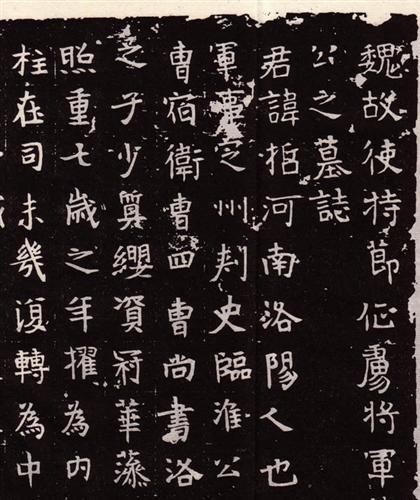 魏故使持節征虜將軍
公之墓誌
君諱哲河南洛陽人也
軍事定州刺史臨淮公
曹宿衛曹四曹尚書洛
之子少簒纓資冠華藻
照重七歲之年擢為内
柱在司未幾復轉為中